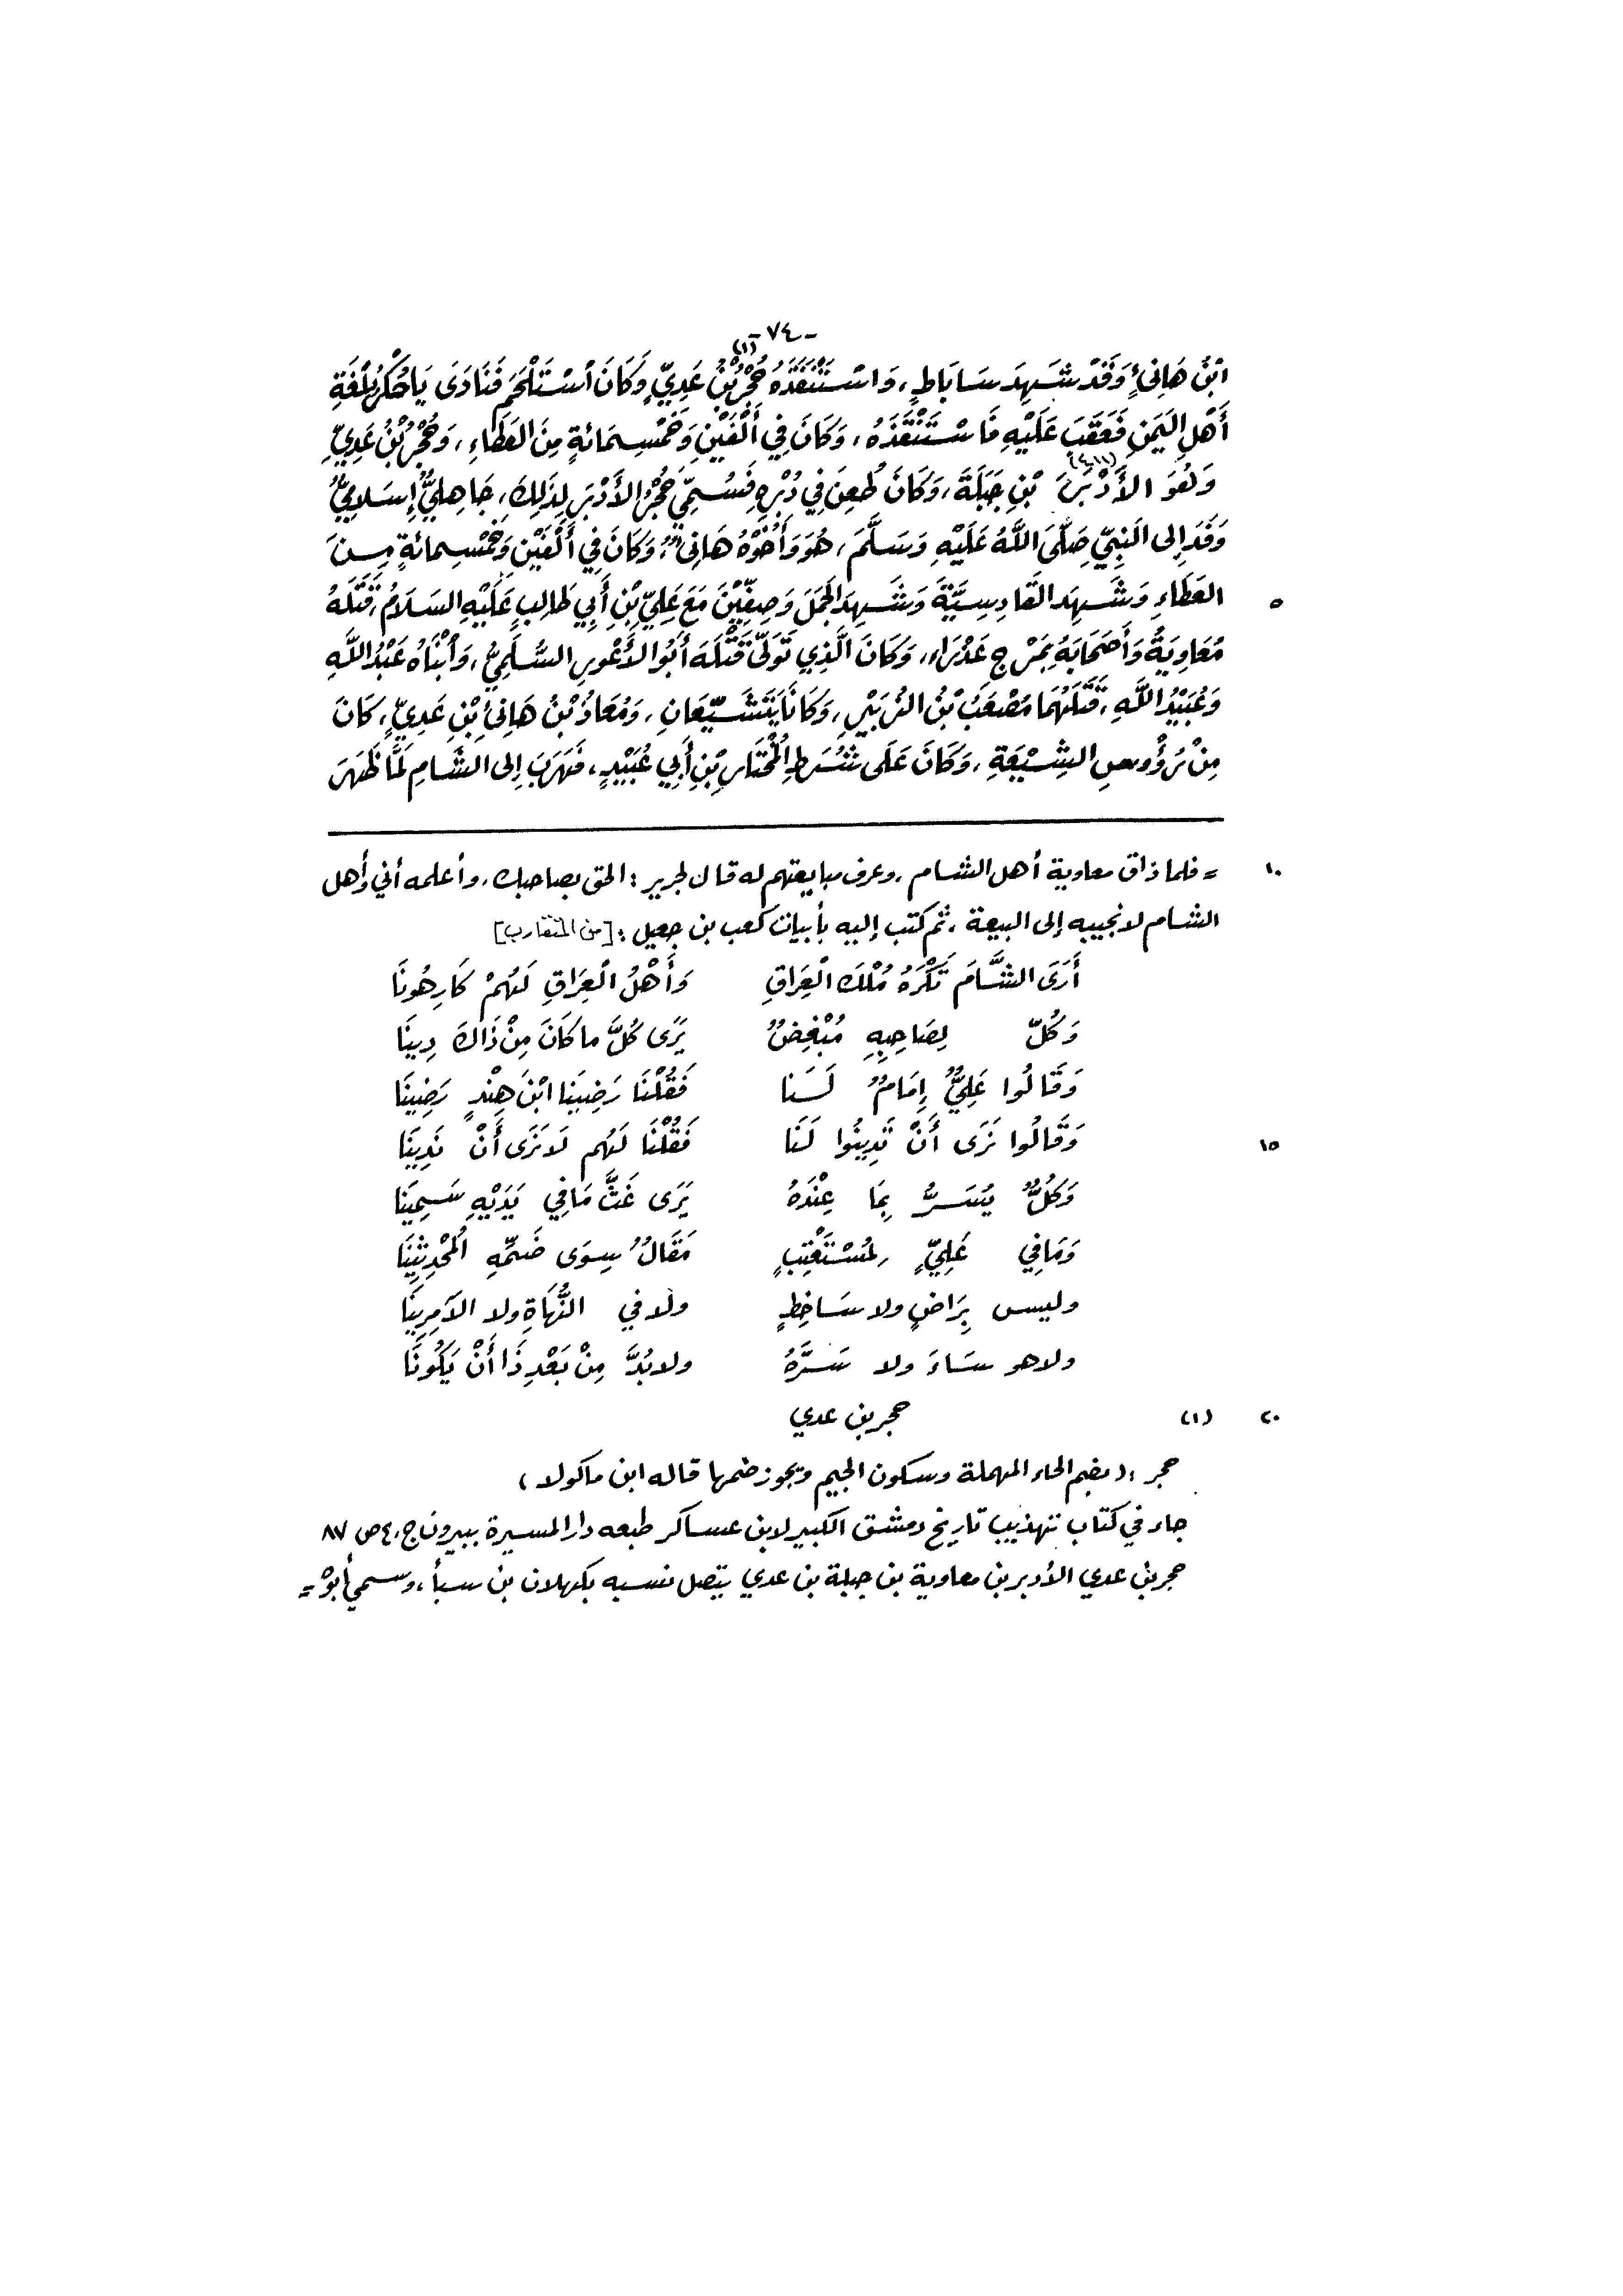 - ٧٤ -
ابْنُ هَانِئٍ وَقَدْ شَهِدَ سَابَاطٍ، وَاسْتَنْقَذَهُ حُجْرُ بْنُ عَدِيٍّ (١) وَكَانَ اسْتَلْحَمَ فَنَادَى يَا حُكْرُ بِلُغَةِ
أَهْلِ اليَمَنِ فَعَقَبَ عَلَيْهِ فَاسْتَنْقَذَهُ، وَكَانَ فِي أَلْفَيْنِ وَخَمْسِمَائَةٍ مِنَ العَطَاءِ، وَحُجْرُ بْنُ عَدِيِّ
وَهُوَ الأَدْبَرُ بْنِ جَبَلَةَ، وَكَانَ طُعِنَ فِي دُبْرِهِ فَسُمِّيَ حُجْرُ الأَدْبَرِ لِذَلِكَ، جَاهِلِيٌّ إِسْلامِيٌّ
وَفَدَ إلى النَبِيِّ صَلَّى اللَّهُ عَلَيْهِ وَسَلَّمَ، هُوَ وَأَخُوْهُ هَانِئٌ، وَكَانَ فِي أَلْفَيْنِ وَخَمْسِمائَةٍ مِنَ
العَطَاءِ وَشَهِدَ القَادِسِيَّةَ وَشَهِدَ الجَمَلَ وَصِفِّيْنَ مَعَ عَلِيِّ بْنِ أَبِي طَالِبٍ عَلَيْهِ السَلَامُ، قَتَلَهُ ٥
مُعَاوِيَةُ وَأَصْحَابَهُ بِمَرْجِ عَذْرَاءَ، وَكَانَ الَّذِي تَوَلَّى قَتْلَهُ أَبُو الأَعْوَرِ السُّلَمِيُّ، وَابْنَاهُ عَبْدُ اللَّهِ
وَعُبَيْدُ اللَّهِ، قَتَلَهُمَا مُصْعَبُ بْنُ الزُبَيْرِ، وَكَانَا يَتَشَيَّعَانِ، وَمُعَاذُ بْنُ هَانِئِ بْنِ عَدِيٍّ، كَانَ
مِنْ رُؤُوسِ الشِيْعَةِ، وَكَانَ عَلَى شُرَطِ المُخْتَارِ بْنِ أَبِي عُبَيْدٍ، فَهَرَبَ إلى الشَامِ لَمَّا ظَهَرَ
= فلما ذاق معاوية أهل الشام، وعرف مبايعتهم له قال لجرير: الحق بصاحبك، وأعلمه أني وأهل ١٠
الشام لا نجيبه إلى البيعة، ثم كتب إليه بأبيات كعب بن جعيل: [من المتقارب]
أَرَى الشَّامَ تَكْرَهُ مُلْكَ العِرَاقِ وَأَهْلُ العِرَاقِ لَهُمْ كَارِهُونَا
وَكُلّ لِصَاحِبِهِ مُبْغِضٌ يَرَى كُلَّ ما كَانَ مِنْ ذَاكَ دِينَا
وَقَالُوا عَلِيٌّ إِمَامٌ لَنَا فَقُلْنَا رَضِينَا ابْنَ هِنْدٍ رَضِينَا
وَقَالُوا نَرَى أَنْ تَدِينُوا لَنَا فَقُلْنَا لَهُم لا نَرَى أَنْ نَدِينَا ١٥
وَكُلٌّ يُسَرُّ بِمَا عِنْدَهُ يَرَى غَثَّ مَا فِي يَدَيْهِ سَمِينَا
وَمَا فِي عَلِيٍّ لِمُسْتَعْتِبٍ مَقَالٌ سِوَى ضَمِّهِ المُحْدِثِينَا
وليس بِرَاضٍ ولا سَاخِطٍ ولا في النُّهَاةِ ولا الآمِرِينَا
ولا هو سَاءَ ولا سَرَّهُ ولا بُدَّ مِنْ بَعْدِ ذَا أَنْ يَكُونَا
(١) حجر بن عدي ٢٠
حجر: (بضم الحاء المهملة وسكون الجيم ويجوز ضمها قاله ابن ماكولا)
جاء في كتاب تهذيب تاريخ دمشق الكبير لابن عساكر طبعه دار المسيرة ببيروت ج، ٤ ص ٨٧
حجر بن عدي الأدبر بن معاوية بن جبلة بن عدي يتصل نسبه بكهلان بن سبأ، وسمي أبوه =